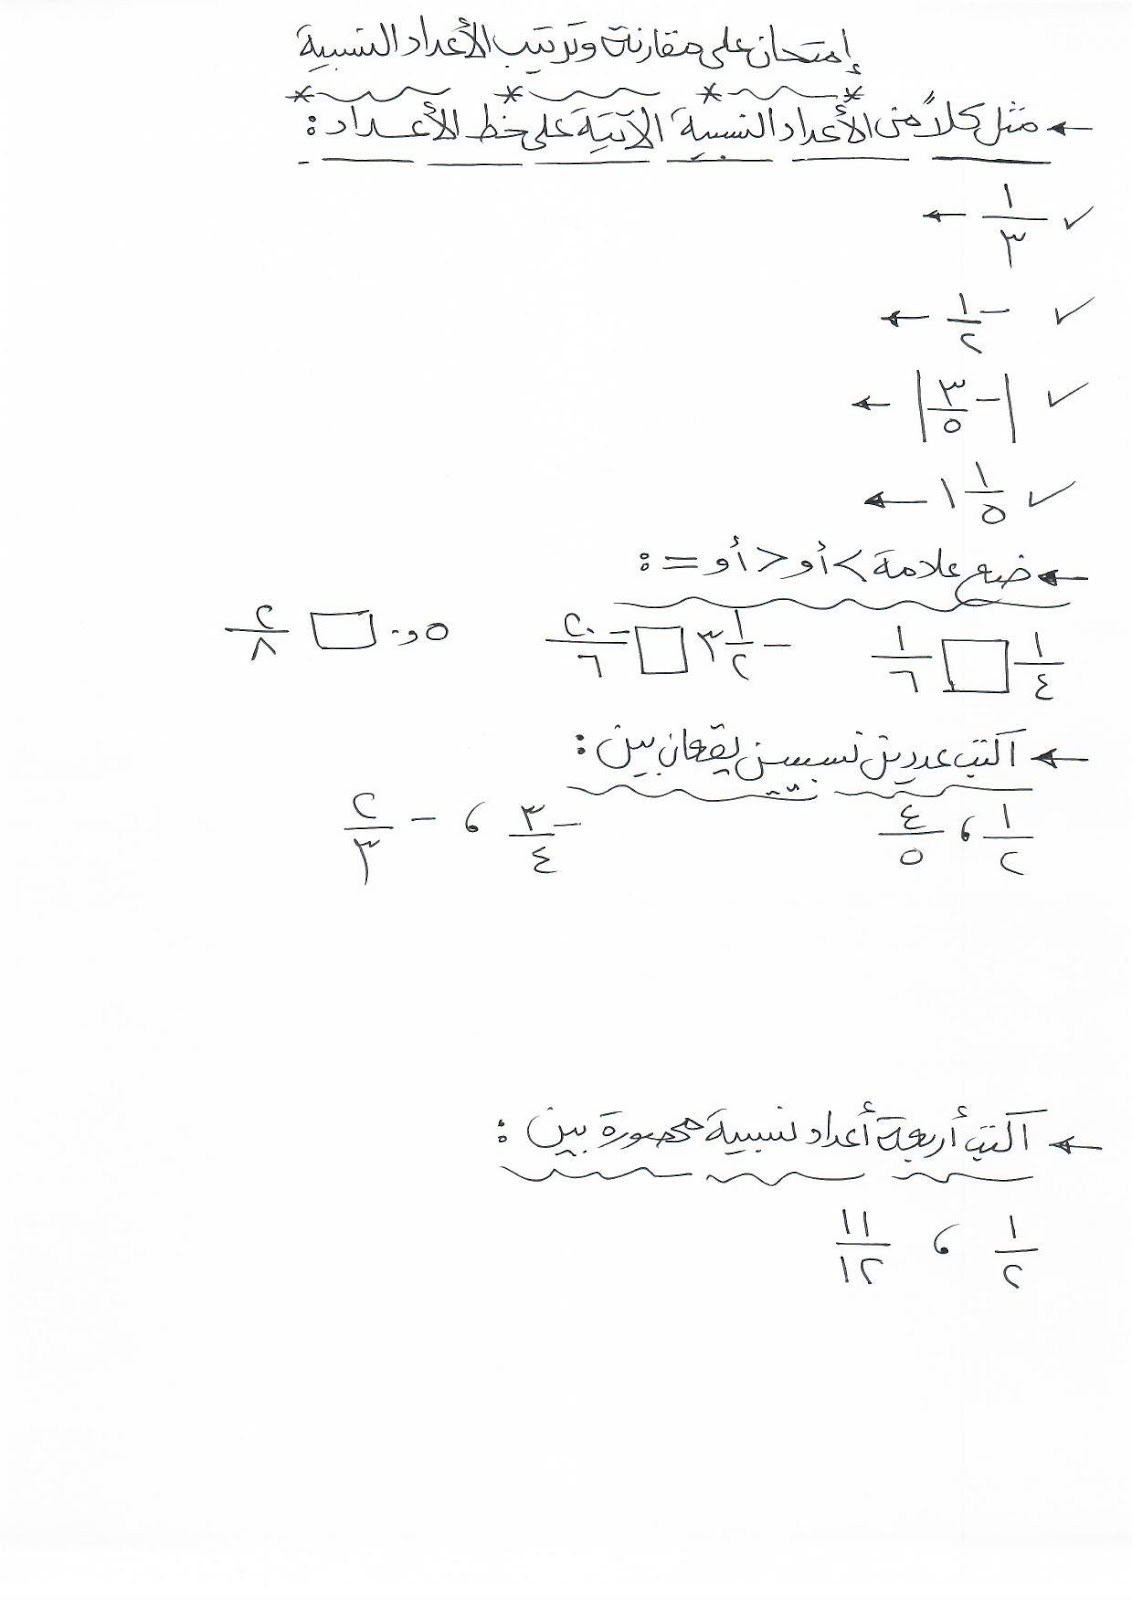 إمتحان على مقارنة وترتيب الأعداد النسبية
مثل كلاً من الأعداد النسبية الآتية على خط الأعداد :
١/٣
- ١/٢
|- ٣/٥|
١ ١/٥
ضع علامة > أو < أو = :
١/٤ □ ١/٦ - ٣ ١/٢ □ - ٢٠/٦ ٠,٥ □ ٢/٨
اكتب عددين نسبيين يقعان بين :
١/٢ ، ٤/٥ - ٣/٤ ، - ٢/٣
اكتب أربعة أعداد نسبية محصورة بين :
١/٢ ، ١١/١٢